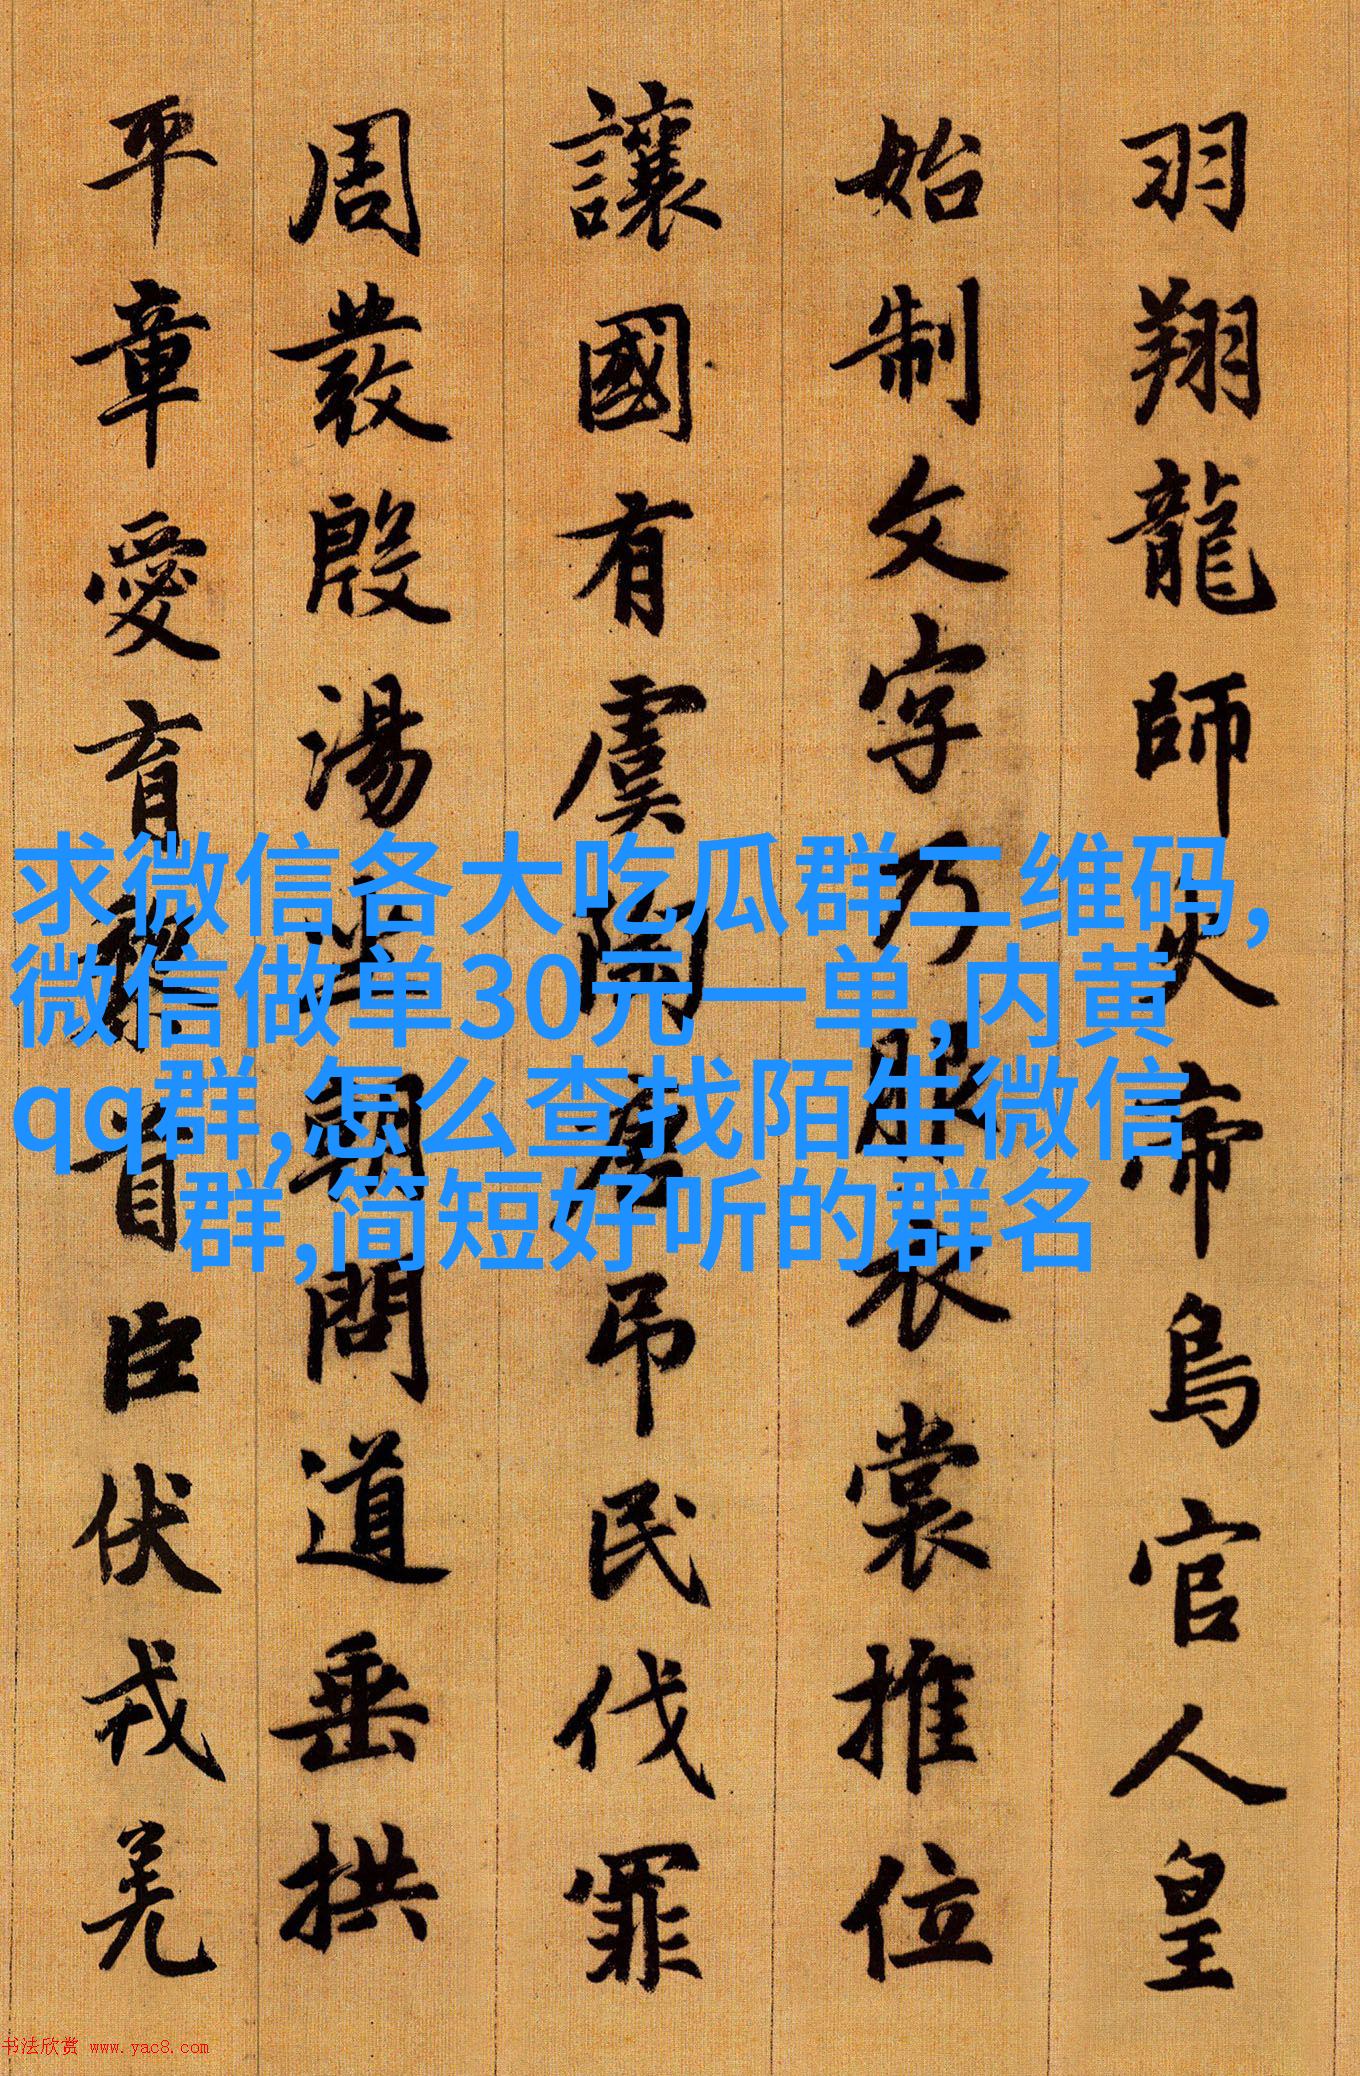 羽翔龍師火帝鳥官人皇
始制文字乃服衣裳推位
讓國有虞陶唐吊民伐罪
周發殷湯坐朝問道垂拱
平章愛育黎首臣伏戎羌
求微信各大吃瓜群二维码,
微信做单30元一单,内黄
qq群,怎么查找陌生微信
群,简短好听的群名
书法欣赏 www.yac8.com